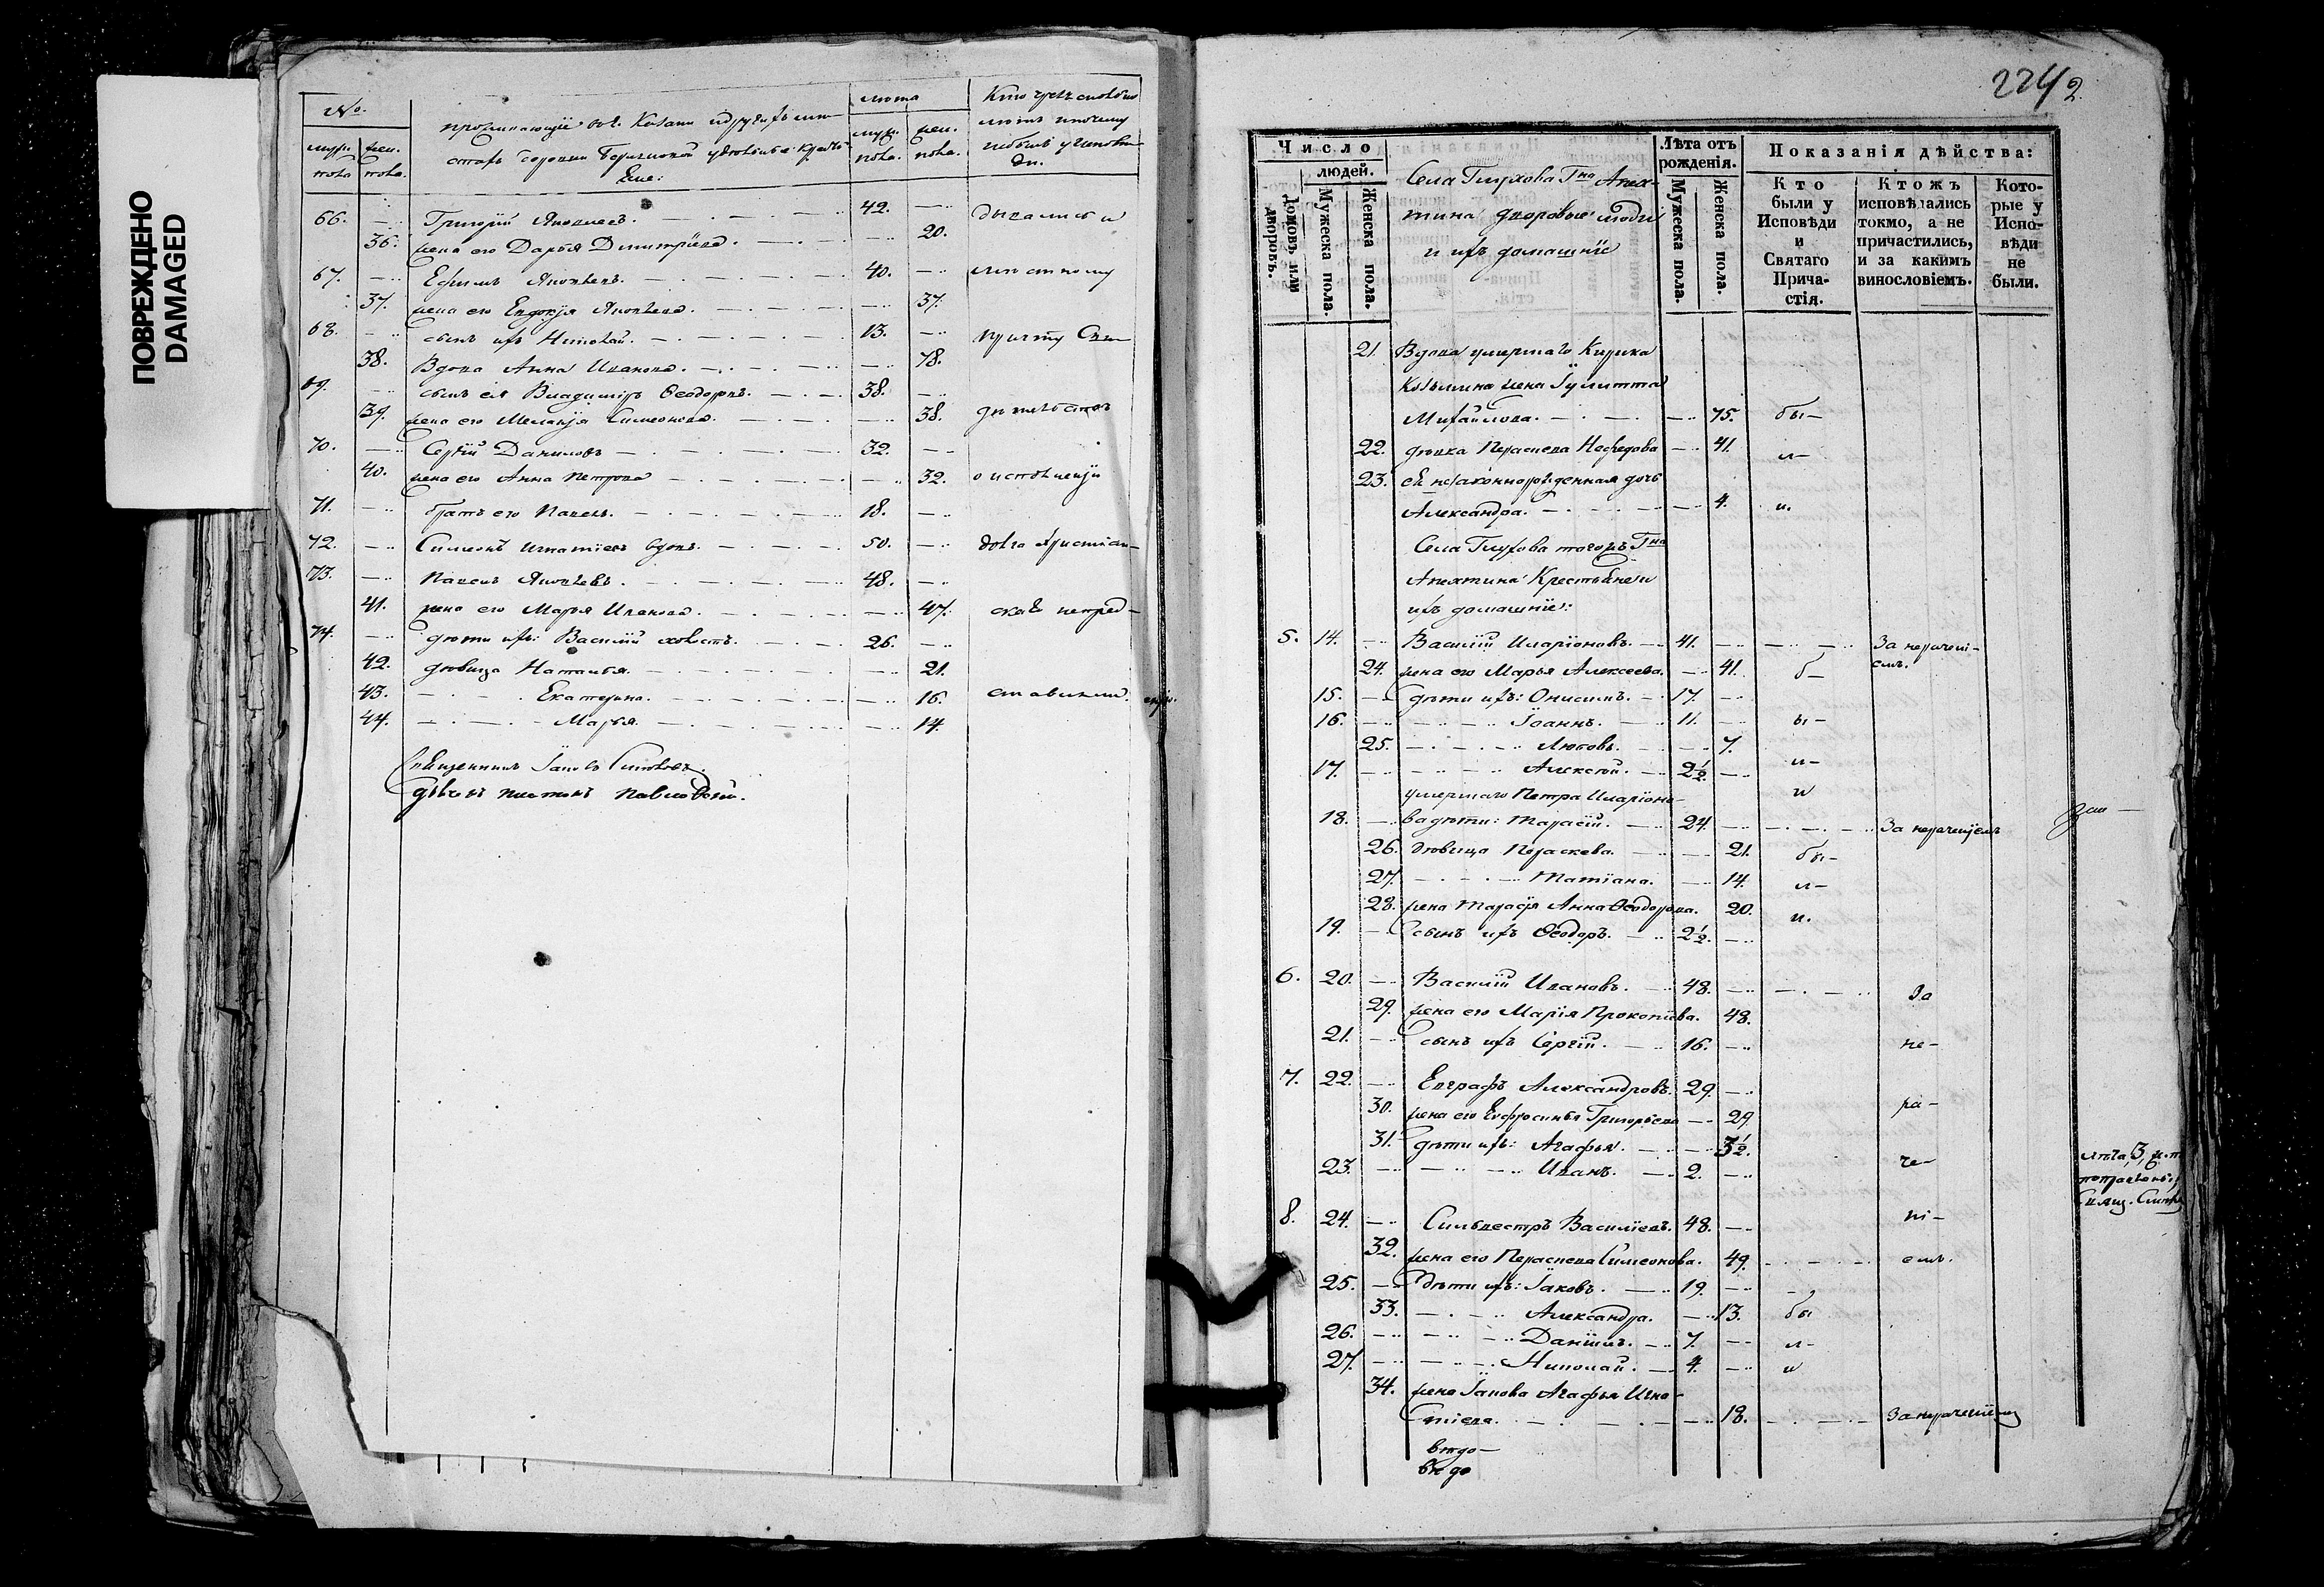 ПОВРЕЖДЕНО
DAMAGED
№.
лѣта
муж. пола
жен. пола.
муж. пола.
жен. пола.
66. Григорій Яковлевъ. 42.
36. жена его Дарья Димитріева. 20.
67. Ефимъ Яковлевъ. 40.
37. жена его Евдокія Яковлева. 37.
68. сынъ ихъ Николай. 13.
38. Вдова Анна Иванова. 78.
69. сынъ ея Владиміръ Ѳеодоровъ. 38.
39. жена его Меланія Симеонова. 38.
70. Сергій Даниловъ 32.
40. жена его Анна Петрова 32.
71. братъ его Павелъ. 18.
72. Симеонъ Игнатіевъ вдовъ. 50.
73. Павелъ Яковлевъ. 48.
41. жена его Марья Иванова. 47.
74. дѣти ихъ: Василій холостъ. 26.
42. дѣвица Наталья. 21.
43. Екатерина. 16.
44. Марья. 14.
Священникъ Іаковъ
дьячекъ Платонъ Павловской.
2242
Число
людей.
Домовъ или дворовъ.
Мужеска пола.
Женска пола.
Села Глухова Гна Апех-
тина дворовые люди
и ихъ домашніе
Лѣта отъ рожденія.
Мужеска пола.
Женска пола.
Показанія дѣйства:
Кто были у Исповѣди и Святаго Прича-стія.
Ктожъ исповѣдались токмо, а не причастились, и за какимъ винословіемъ.
Кото-рые у Испо-вѣди не были.
21. Вдова умершаго Кирика
Козьмина жена Іулитта
Михайлова. 75. бы-
22. дѣвка Параскева Нефедова 41. л-
23. ея незаконнорожденная дочь
Александра. 4. и.
Села Глухова тогожъ Гна
Апехтина Крестьяне и
ихъ домашніе:
5. 14. Василій Иларіоновъ. 41. За нерачені-
емъ.
24. жена его Марья Алексеева. 41. б-
15. дѣти ихъ: Онисимъ. 17.
16. Іоаннъ. 11. ы-
25. Любовь. 7.
17. Алексѣй. 2½. л-
умершаго Петра Иларіоно- и
18. ва дѣти: Тарасій. 24. За нераченіемъ
26. дѣвица Параскева. 21. бы-
27. Татіана. 14. л-
28. жена Тарасія Анна Ѳеодорова. 20. и.
19. сынъ ихъ Ѳеодоръ. 2½.
6. 20. Василій Ивановъ. 48. За
29. жена его Марія Прокопіева. 48.
21. сынъ ихъ Сергій. 16. не-
7. 22. Евграфъ Александровъ. 29.
30. жена его Евфросинья Григорьева 29. ра-
31. дѣти ихъ: Агафья. 3½.
23. Иванъ. 2. че-
8. 24. Сильвестръ Василіевъ. 48. ні-
32. жена его Параскева Симеонова. 49. емъ.
25. дѣти ихъ: Іаковъ. 19.
33. Александра. 13. бы
26. Даніилъ. 7. л-
27. Николай. 4. и
34. жена Іакова Агафья Игна-
тіева. 18. За нераченіемъ